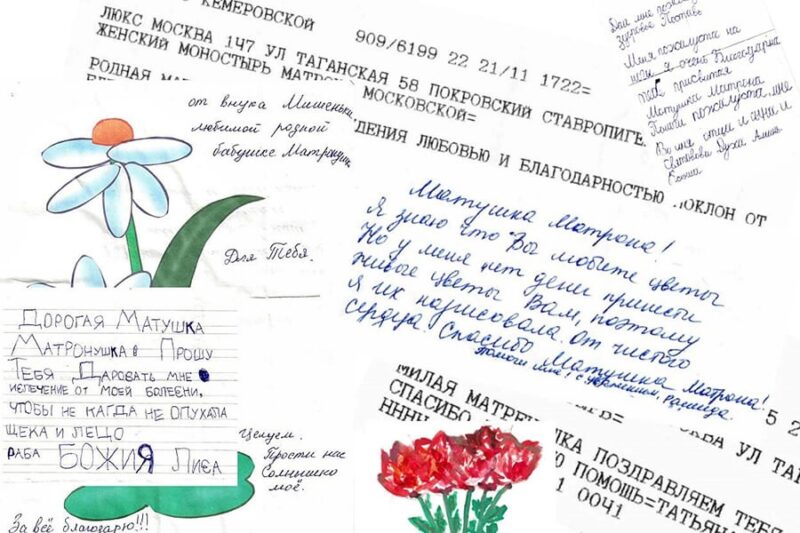 КЕМЕРОВСКОЙ
909/6199 22 21/11 1722=
ЛЮКС МОСКВА 147 УЛ ТАГАНСКАЯ 58 ПОКРОВСКИЙ СТАВРОПИГЕ
ЖЕНСКИЙ МОНОСТЫРЬ МАТРО
РОДНАЯ МА
МОСКОВСКОЙ=
ДЕНИЯ ЛЮБОВЬЮ И БЛАГОДАРНОСТЬЮ ПОКЛОН ОТ
Дай мне
здоровье
Меня пожалуста на
я очень благодарна
тебе присвятая
Матушка Матрона
Помоги пожалуста мне
Во имя отца и сына и
Духа Аминь
от внука Мишеньки
любимой родной
бабушке Матронушке
Для Тебя.
Матушка Матрона!
Я знаю что Вы любите цветы
Но у меня нет денег принести
живые цветы Вам, поэтому
я их нарисовала от чистого
сердца Спасибо Матушка Матрона!
Помоги мне! с уважением,
ДОРОГАЯ МАТУШКА
МАТРОНУШКА ПРОШУ
ТЕБЯ ДАРОВАТЬ МНЕ
ИЗЛЕЧЕНИЕ ОТ МОЕЙ БОЛЕЗНИ,
ЧТОБЫ НЕ КАГДА НЕ ОПУХАЛА
ЩЕКА И ЛЕЦО
РАБА БОЖИЯ ЛИЗА
целуем.
Прости нас
Солнышко
моё.
За всё благодарю!!!
МИЛАЯ МАТРЕ
КВА УЛ ТА
СПАСИБО
ШКА ПОЗДРАВЛЯЕМ ТЕБЯ
НННН
Ю ПОМОЩЬ=ТАТЬЯН
1 0041